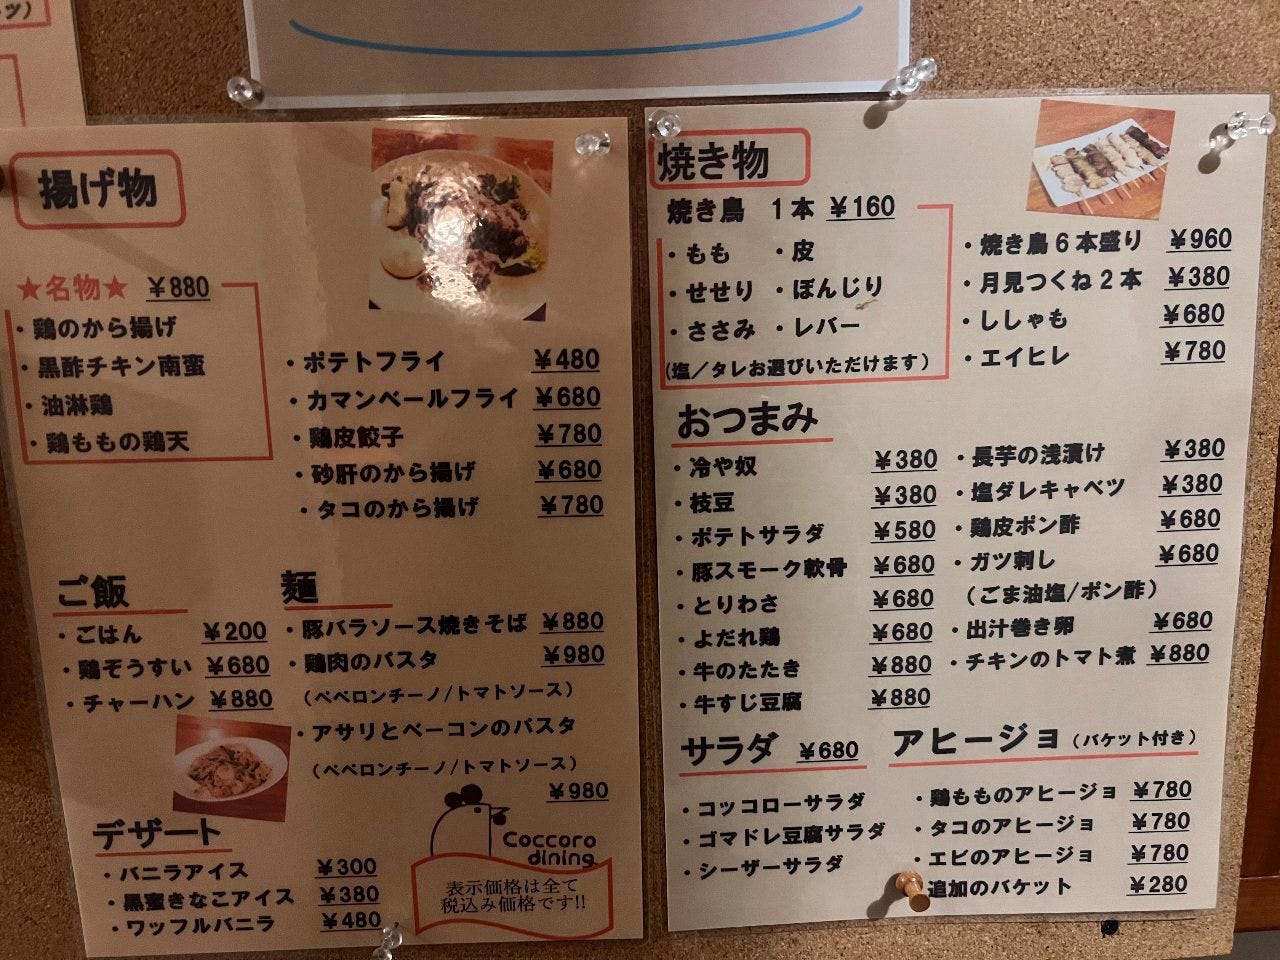 ツ)
揚げ物
★名物★ ￥880
・鶏のから揚げ
・黒酢チキン南蛮
・油淋鶏
・鶏ももの鶏天
・ポテトフライ ￥480
・カマンベールフライ ￥680
・鶏皮餃子 ￥780
・砂肝のから揚げ ￥680
・タコのから揚げ ￥780
ご飯
・ごはん ￥200
・鶏ぞうすい ￥680
・チャーハン ￥880
麺
・豚バラソース焼きそば ￥880
・鶏肉のパスタ ￥980
（ペペロンチーノ/トマトソース）
・アサリとベーコンのパスタ
（ペペロンチーノ/トマトソース）
￥980
デザート
・バニラアイス ￥300
・黒蜜きなこアイス ￥380
・ワッフルバニラ ￥480
Coccoro
dining
表示価格は全て
税込み価格です!!
焼き物
焼き鳥 1本 ￥160
・もも ・皮
・せせり ・ぼんじり
・ささみ ・レバー
（塩／タレお選びいただけます）
・焼き鳥6本盛り ￥960
・月見つくね2本 ￥380
・ししゃも ￥680
・エイヒレ ￥780
おつまみ
・冷や奴 ￥380
・枝豆 ￥380
・ポテトサラダ ￥580
・豚スモーク軟骨 ￥680
・とりわさ ￥680
・よだれ鶏 ￥680
・牛のたたき ￥880
・牛すじ豆腐 ￥880
・長芋の浅漬け ￥380
・塩ダレキャベツ ￥380
・鶏皮ポン酢 ￥680
・ガツ刺し ￥680
（ごま油塩/ポン酢）
・出汁巻き卵 ￥680
・チキンのトマト煮 ￥880
サラダ ￥680
・コッコローサラダ
・ゴマドレ豆腐サラダ
・シーザーサラダ
アヒージョ（バケット付き）
・鶏もものアヒージョ ￥780
・タコのアヒージョ ￥780
・エビのアヒージョ ￥780
追加のバケット ￥280